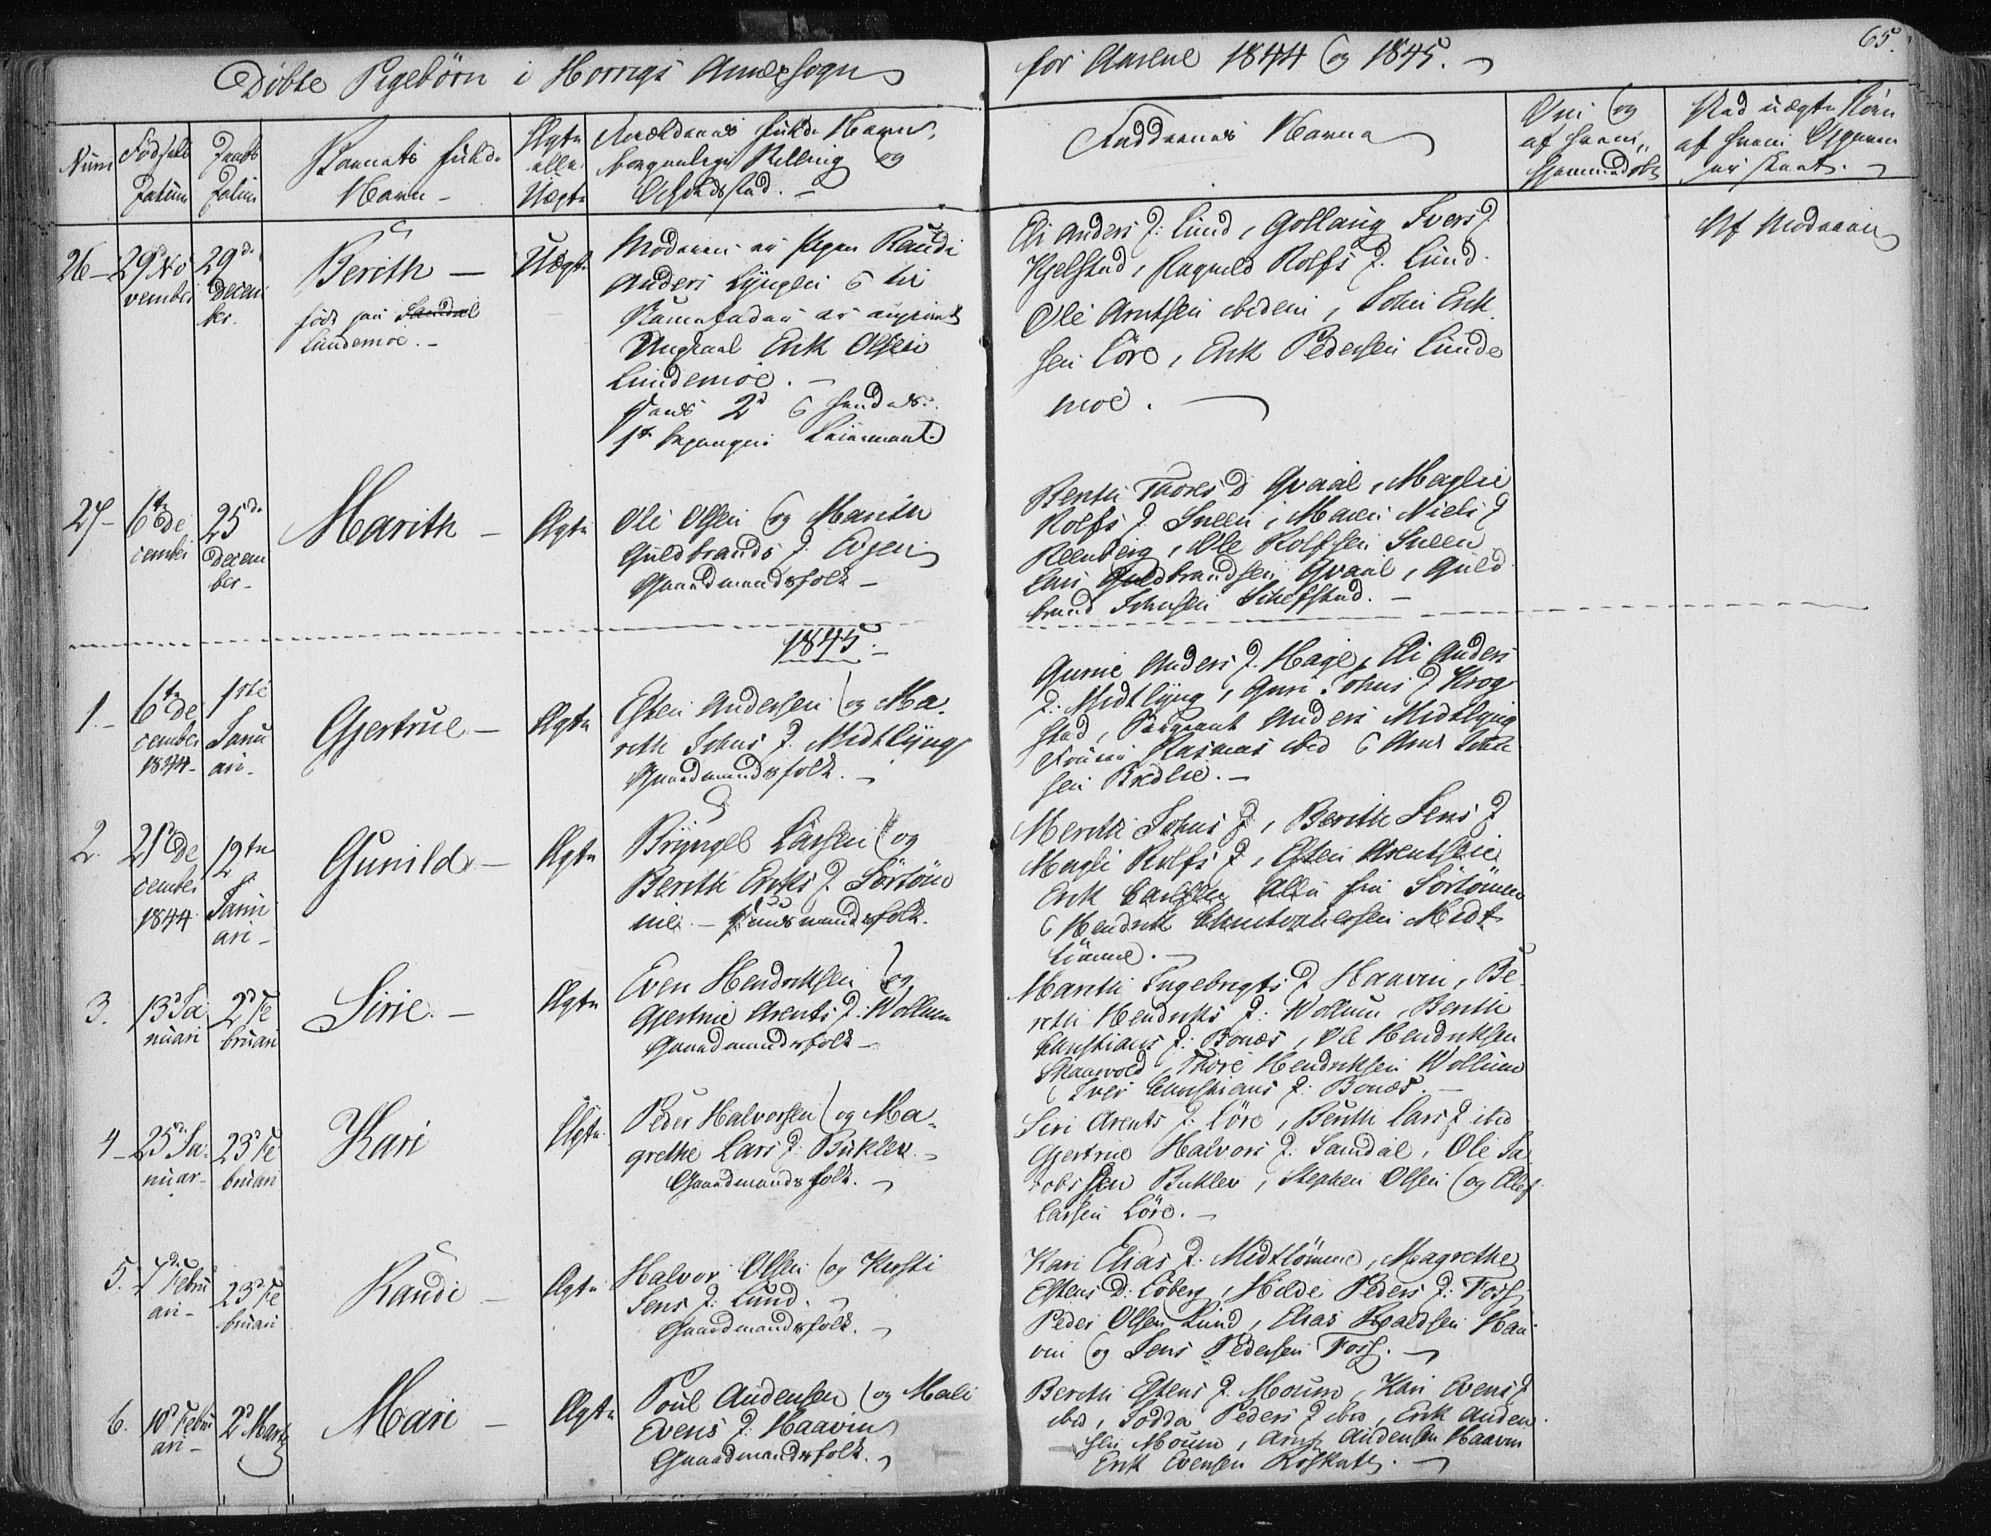 65.
Döbte Pigebörn i Horrigs Annexsogn for Aarene 1844 og 1845.
Num
Födsels Datum
Daabs Datum
Barnets fulde Navn
Ægte eller Uægte
Forældrenes fulde Navne, borgerlige Stilling og Opholdssted.
Faddernes Navne
Om og af hvem hjemmedöbt
Ved uægte Börn af hvem Opgaven er skeet.
26
29de November
29de December.
Berith
föd paa Sandal
Lundemoe.
Uægte
Moderen er Pigen Randi
Anders Lÿngen
Barnefader er angivet
Ungkarl Erik Olsen
Lundemoe.
hans 2d hendes
1ste begangne Leiermaal.
Eli Anders D: Lund, Gollaug Ivers D
Kjelstad, Ragnild Rolfs D. Lund.
Ole Arntsen ibidem, John Erik
sen Löre, Erik Pedersen Lunde
moe.
Af Moderen
27
6te December
25de December
Marith
Ægte
Ole Olsen og Marith
Guldbrands D.
Gaardmandsfolk
Berith Thores D Qvaal, Maglie
Rolfs D. Sneen, Maren Niels D
Reenberg, Ole Rolfsen Sneen
Lars Guldbrandsen Qvaal, Guld
brand Johnsen
1845.
1.
6te December 1844
1ste Januari
Gjertrue
Ægte
Esten Andersen og Ma
reth Johns D. Midtlÿng
Gaardmandsfolk.
Gurie Anders D. Hage, Eli Anders
D. Midtlÿng, Guri Johns D Krog
stad, Sergeant Anders Midtlÿng
Rasmus ibid Arnt John
sen Bredlie.
2.
21de December 1844
12te Januari
Gunild
Ægte
Brÿngel Larsen og
Berith Eriks D. Sörtöm
me. Huusmandsfolk.
Merith Johns D., Berith Jens D
Magli Rolfs D., Esten Arentsen
Erik Larssen Alle fra Sörtömme
Hendrik Christophersen Midt
tömme.
3.
13de Januari
2de Februari
Sirie
Ægte
Even Hendriksen og
Gjertrue Arents D. Wollum
Gaardmandsfolk
Marith Ingebrigts D Haavin, Be
reth Hendriks D: Wollum, Berith
Christians D: Bonæs, Ole Hendriksen
Skaarvold, Thore Hendriksen Wollum
Iver Christians D: Bonæs.
4
25de Januar
23de Februari
Kari
Ægte
Peder Halvorsen og Ma
grethe Lars D. Buklev.
Gaardmandsfolk.
Siri Arents D. Löre, Berith Lars D ibid
Gjertrue Halvors D. Samdal, Ole Ja
cobssen Buklev, Stephen Olsen og Elief
Larsen Löre.
5.
7de Februari
23de Februari
Randi
Ægte
Halvor Olsen og Kirsti
Jens D. Lund.
Gaardmandsfolk.
Kari Elias D. Midttömme, Magrethe
Estens D. Löberg, Hilde Peders D. Foss
Peder Olsen Lund, Elias Roaldsen Haa
vin og Jens Pedersen Foss.
6.
10de Februari
2de Marts
Mari
Ægte
Poul Andersen og Mali
Evens D. Haavin
Gaardmandsfolk.
Berith Estens D. Moum, Kari Evens D
ibid, Sodda Peders D ibid, Erik Ander
sen Moum, Arnt Andersen Haavin
Erik Evensen Röskaft.